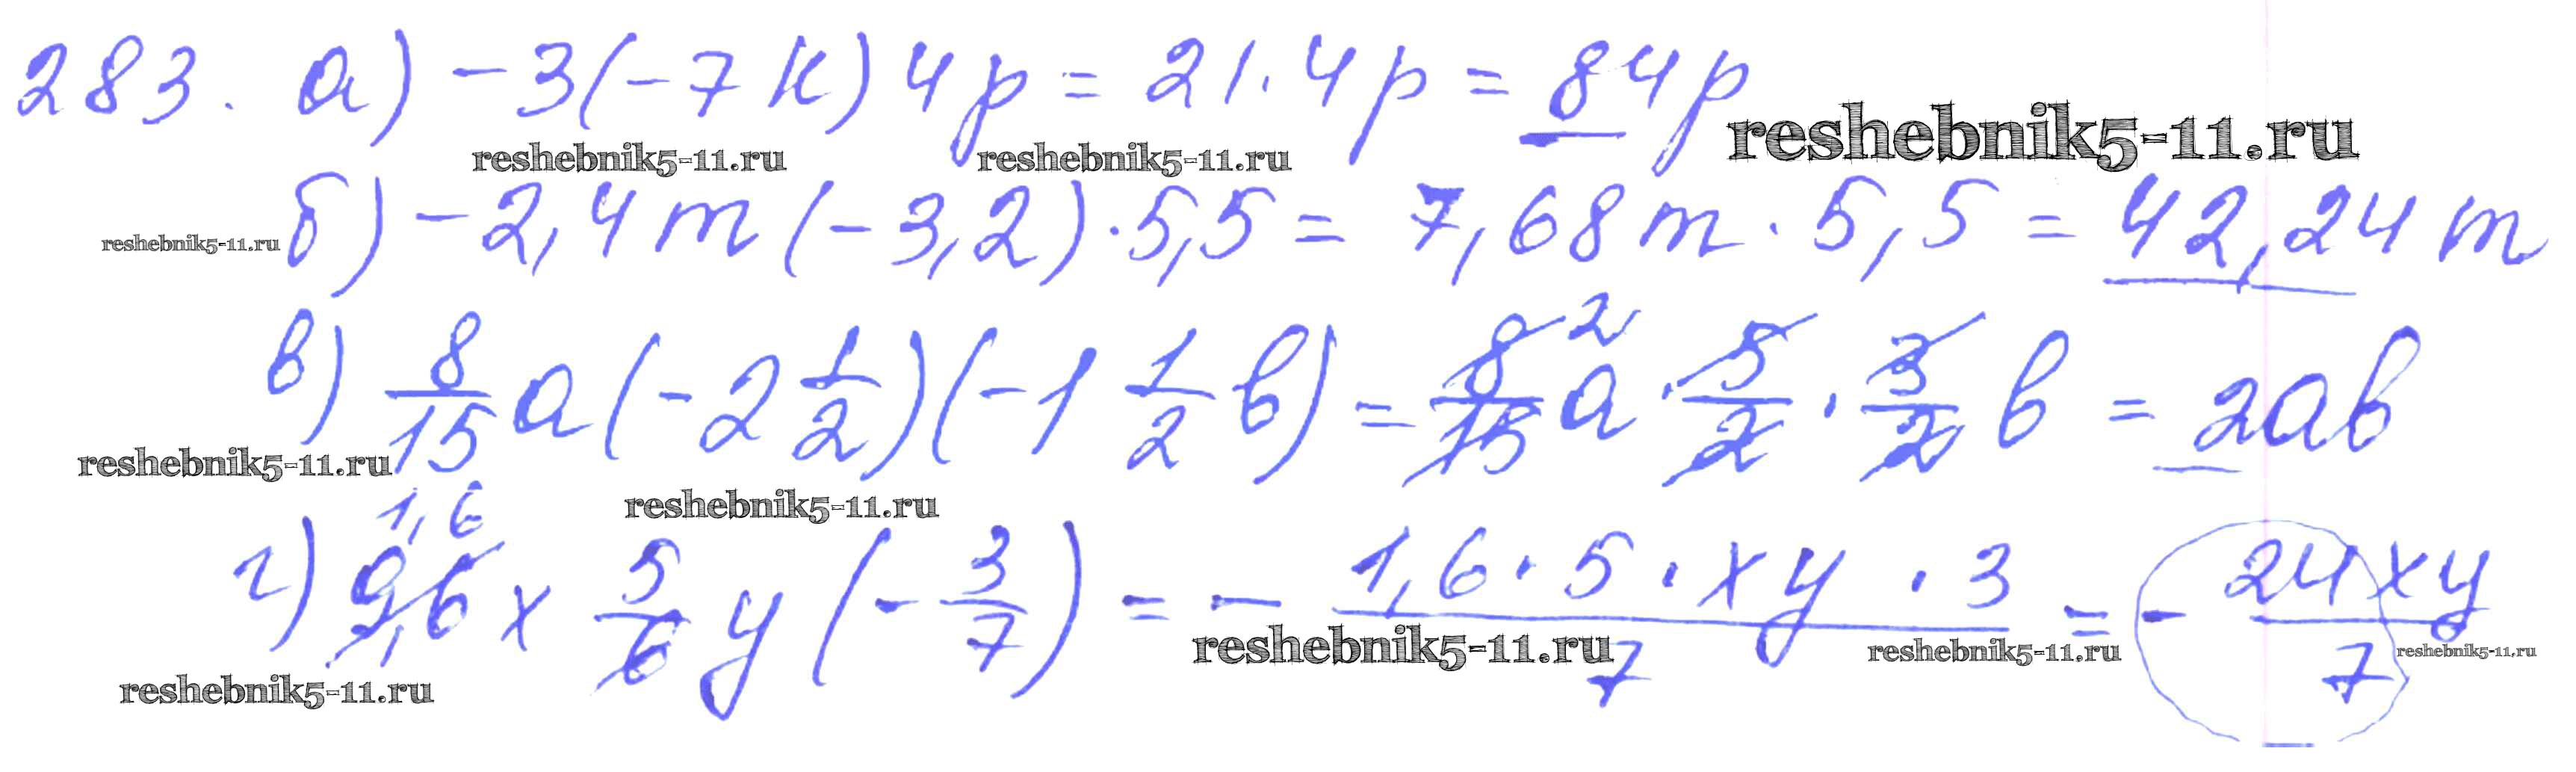 283. а) -3(-7k)4p = 21.4p = 84p
reshebnik5-11.ru
reshebnik5-11.ru reshebnik5-11.ru
reshebnik5-11.ru б) -2,4m(-3,2)·5,5 = 7,68m·5,5 = 42,24m
в) 8/15 a(-2 1/2)(-1 1/2 b) = 8/15 2 a · 5/2 · 3/2 b = 2ab
reshebnik5-11.ru
reshebnik5-11.ru
г) 1,6 9,6 x 5/6 y(-3/7) = - 1,6·5·xy·3/7 = - 24xy/7
reshebnik5-11.ru reshebnik5-11.ru reshebnik5-11.ru
reshebnik5-11.ru